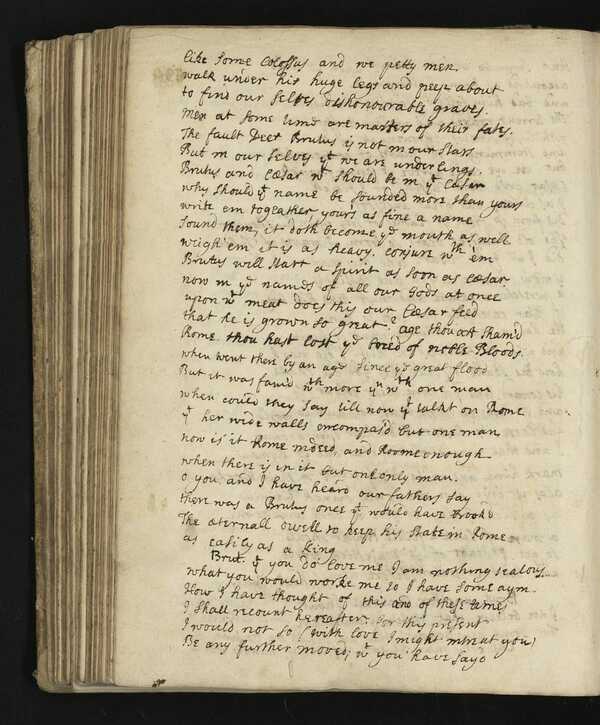 like some Colossus and we petty men
walk under his huge legs and peep about
to find our selves dishonourable graves.
men at some times are masters of their fates.
The fault Deer Brutus is not in our stars
But in our selves yt we are underlings.
Brutus and Cæsar wt should be in yt Cæsar
why should yt name be sounded more than yours
write em togeather, yours as fine a name
sound them, it doth become ye mouth as well
weigh 'em it is as heavy. conjure wth 'em
Brutus will start a spirit as soon as Cæsar.
now in ye names of all our Gods at once
upon wt meat does this our Cæsar feed
that he is grown so great? age thou art sham'd
Rome thou hast lost ye breed of noble Bloods.
when went there by an age since ye great flood
But it was fam'd wth more yn wth one man
when could they say till now yt talkt on Rome
yt her wide walls encompas'd but one man
now is it Rome indeed, and Roome enough
when there is in it but one only man.
o you and I have heard our fathers say
there was a Brutus once yt would have Brook'd
The æternall divell to keep his state in Rome
as easily as a King
Brut. yt you do love me I am nothing jealous
what you would worke me to I have some aym.
How I have thought of this and of these times
I shall recount hereafter. for this present
I would not so (with love I might intreat you)
Be any further moved; wt you have sayd